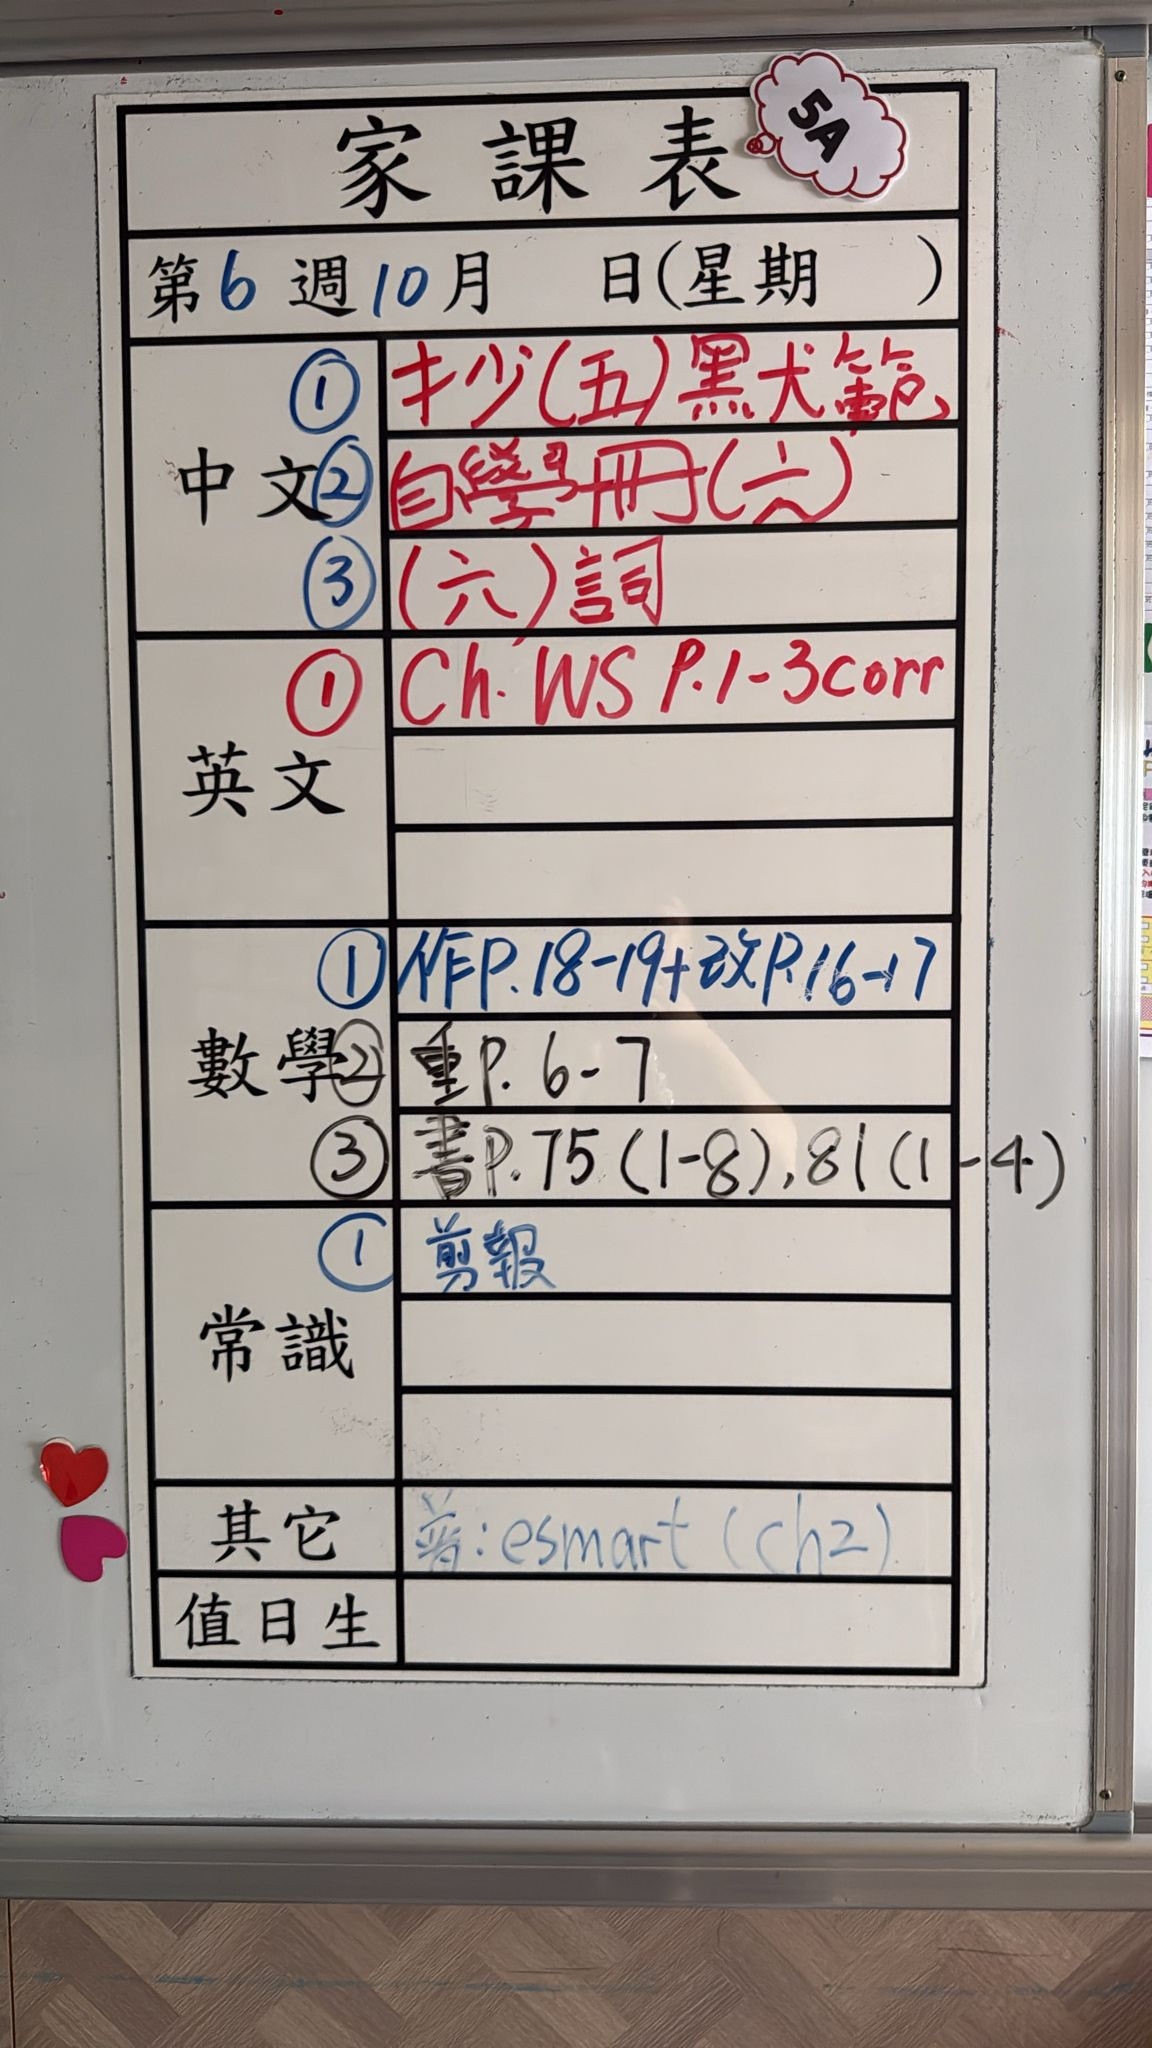 家課表
5A
第6週10月 日(星期 )
中文
① 抄(五)黑犬範
② 自學冊(六)
③ (六)詞
英文
① Ch. WS P.1-3corr
數學
① 作P.18-19+改P.16-17
② 重P.6-7
③ 書P.75(1-8),81(1-4)
常識
① 剪報
其它 普:esmart(ch2)
值日生